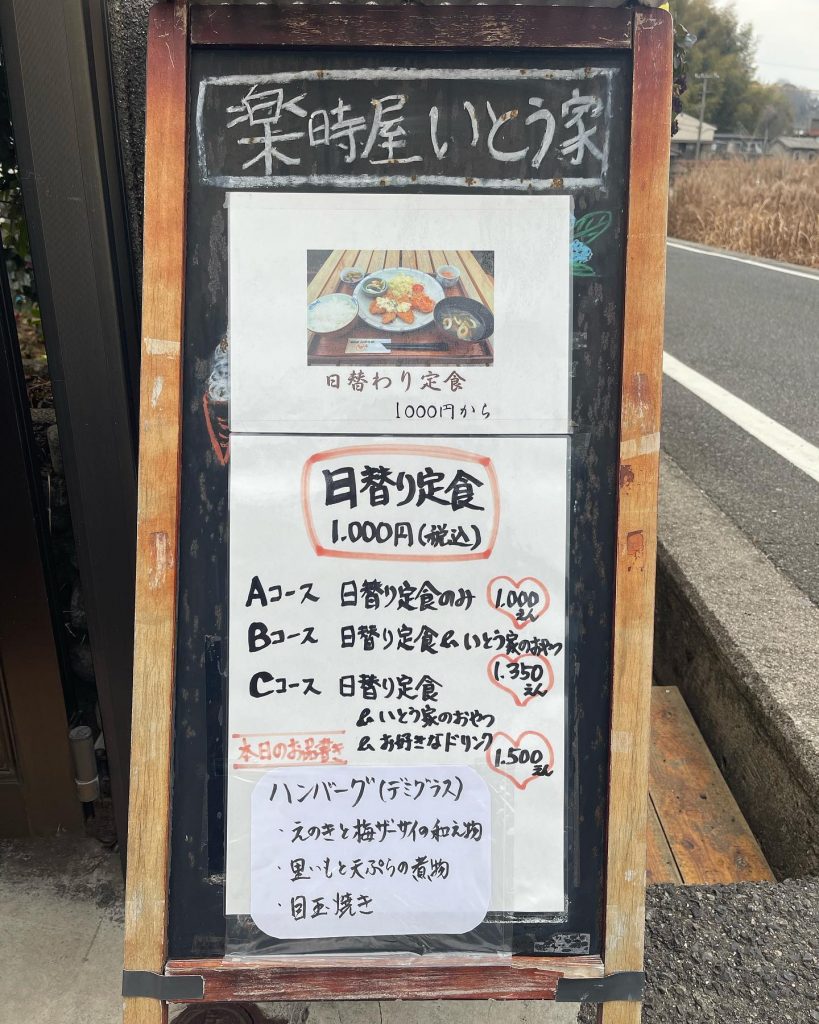 楽時屋いとう家
日替わり定食
1000円から
日替り定食
1.000円(税込)
Aコース 日替り定食のみ 1.000えん
Bコース 日替り定食&いとう家のおやつ 1.350えん
Cコース 日替り定食
&いとう家のおやつ
&お好きなドリンク 1.500えん
本日のお品書き
ハンバーグ(デミグラス)
・えのきと梅ザーサイの和え物
・里いもと天ぷらの煮物
・目玉焼き